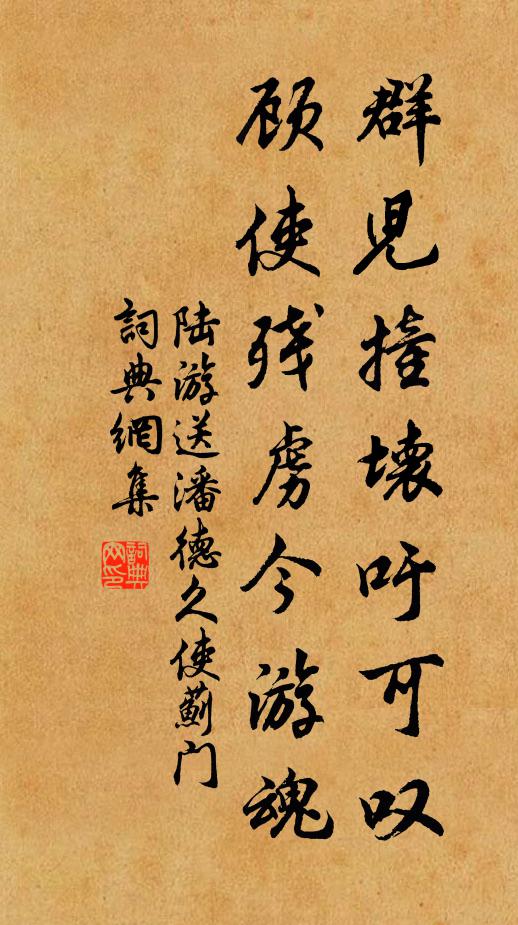 群児撞壊吁可叹
顾使残虏今游魂
陆游送潘德久使蓟门
词典網集
詞典网印